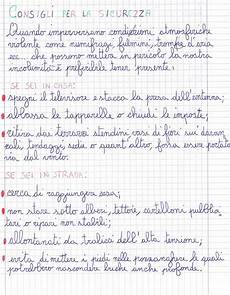 CONSIGLI PER LA SICUREZZA
Quando imperversano condizioni atmosferiche
violente come numifragi, fulmini, trombe d'aria
ecc... che possono mettere in pericolo la nostra
incolumità è preferibile tener presente:
SE SEI IN CASA:
spegni il televisore e stacca la presa dell'antenna;
abbassa le tapparelle o chiudi le imposte;
ritira dai terrazzi stendini, vasi di fiori sui davan
zali, tendaggi, sedie o quant'altro, possa essere portato
via dal vento.
SE SEI IN STRADA:
cerca di raggiungere casa;
non stare sotto alberi, tettoie, cartelloni pubblici
tari o ripari non stabili;
allontanati da tralicci dell'alta tensione;
evita di mettere i piedi nelle pozzanghere le quali
potrebbero nascondere buche anche profonde.